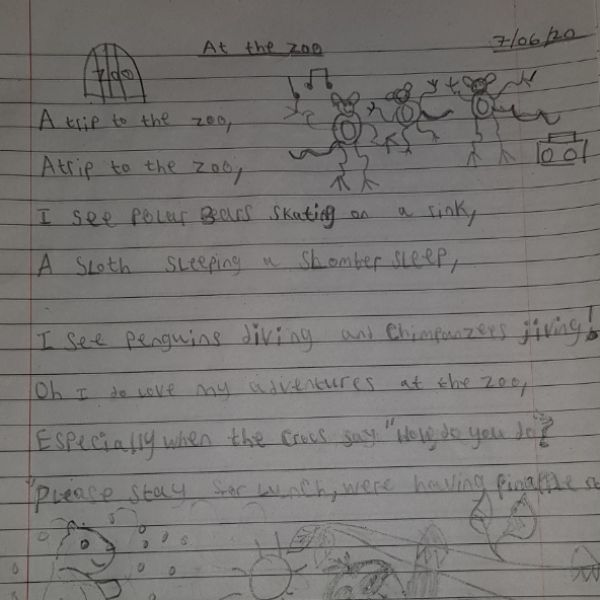 At the zoo
7/06/20
zoo
A trip to the zoo,
A trip to the zoo,
I see Polar Bears skating on a rink,
A sloth sleeping a slomber sleep,
I see penguins diving and Chimpanzees jiving!
Oh I do love my adventures at the zoo,
Especially when the Crocs say "How do you do?
"Please stay for lunch, were having